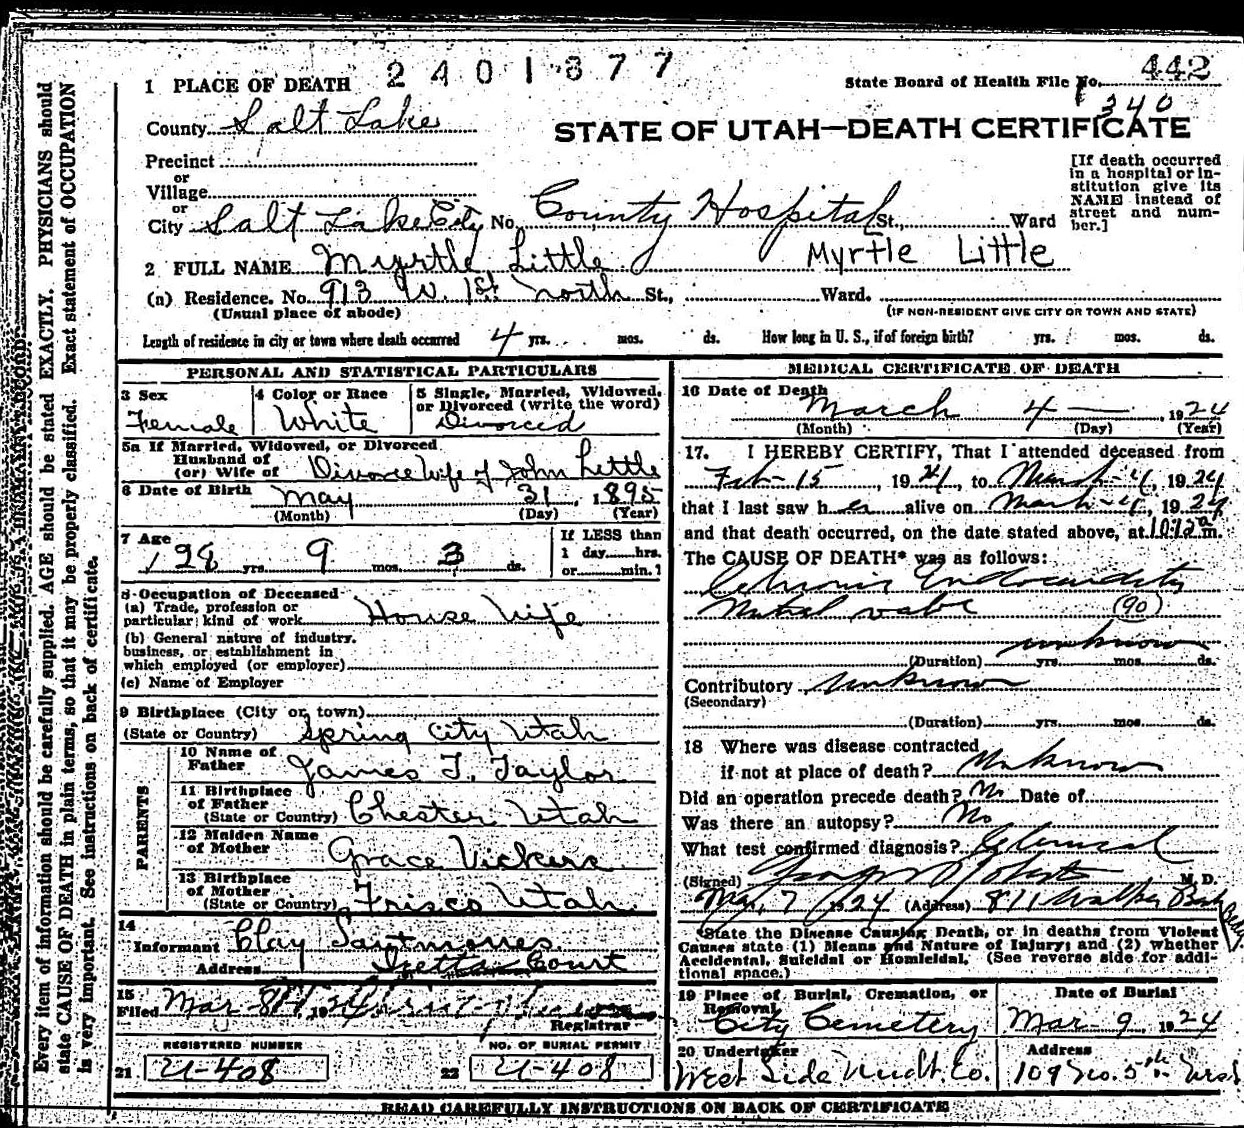 2401877
1 PLACE OF DEATH
State Board of Health File No. 442
340
County Salt Lake
STATE OF UTAH—DEATH CERTIFICATE
Precinct
or
Village
or
City Salt Lake City No. County Hospital St., Ward
[If death occurred in a hospital or institution give its NAME instead of street and number.]
2 FULL NAME Myrtle Little Myrtle Little
(a) Residence. No. 913 W. 1st North St., Ward.
(Usual place of abode) (IF NON-RESIDENT GIVE CITY OR TOWN AND STATE)
Length of residence in city or town where death occurred 4 yrs. mos. ds. How long in U. S., if of foreign birth? yrs. mos. ds.
PERSONAL AND STATISTICAL PARTICULARS
3 Sex
Female
4 Color or Race
White
5 Single, Married, Widowed,
or Divorced (write the word)
Divorced
5a If Married, Widowed, or Divorced
Husband of
(or) Wife of Divorce Wife of John Little
6 Date of Birth May 31, 1895
(Month) (Day) (Year)
7 Age
28 yrs. 9 mos. 3 ds.
If LESS than
1 day......hrs.
or......min.?
8 Occupation of Deceased
(a) Trade, profession or
particular kind of work House Wife
(b) General nature of industry,
business, or establishment in
which employed (or employer)
(c) Name of Employer
9 Birthplace (City or town)
(State or Country) Spring City Utah
PARENTS
10 Name of
Father James T. Taylor
11 Birthplace
of Father
(State or Country) Chester Utah
12 Maiden Name
of Mother Grace Vickers
13 Birthplace
of Mother
(State or Country) Frisco Utah
14
Informant Clay
Address Court
15
Filed Mar 8th 1924
Registrar
REGISTERED NUMBER NO. OF BURIAL PERMIT
21 U-408 22 U-408
MEDICAL CERTIFICATE OF DEATH
16 Date of Death
March 4 — , 1924
(Month) (Day) (Year)
17. I HEREBY CERTIFY, That I attended deceased from
Feb - 15, 1924, to March - 4, 1924
that I last saw her alive on March - 4, 1924
and that death occurred, on the date stated above, at 10:12 a m.
The CAUSE OF DEATH* was as follows:
Chronic Endocarditis
Mitral valve (90)
unknown
(Duration) yrs. mos. ds.
Contributory unknown
(Secondary)
(Duration) yrs. mos. ds.
18 Where was disease contracted
if not at place of death? Unknown
Did an operation precede death? No Date of
Was there an autopsy? No
What test confirmed diagnosis? Clinical
(Signed) George Roberts M. D.
Mar, 7 1924 (Address) 811 Walker Bank Bldg
*State the Disease Causing Death, or in deaths from Violent
Causes state (1) Means and Nature of Injury; and (2) whether
Accidental, Suicidal or Homicidal. (See reverse side for addi-
tional space.)
19 Place of Burial, Cremation, or
Removal
City Cemetery
Date of Burial
Mar 9 1924
20 Undertaker
West Side Undt. Co.
Address
109 So. 5th West
READ CAREFULLY INSTRUCTIONS ON BACK OF CERTIFICATE
Every item of information should be carefully supplied. AGE should be stated EXACTLY. PHYSICIANS should
state CAUSE OF DEATH in plain terms, so that it may be properly classified. Exact statement of OCCUPATION
is very important. See instructions on back of certificate.